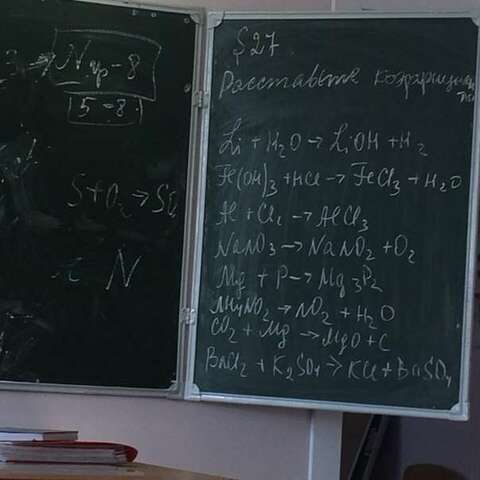 N гр - 8
5 - 8
S + O₂ → SO
N
§ 27
Расставьте коэффициенты
Li + H₂O → LiOH + H₂
Fe(OH)₃ + HCl → FeCl₃ + H₂O
Al + Cl₂ → AlCl₃
NaNO₃ → NaNO₂ + O₂
Mg + P → Mg₃P₂
NH₄NO₂ → NO₂ + H₂O
CO₂ + Mg → MgO + C
BaCl₂ + K₂SO₄ → KCl + BaSO₄